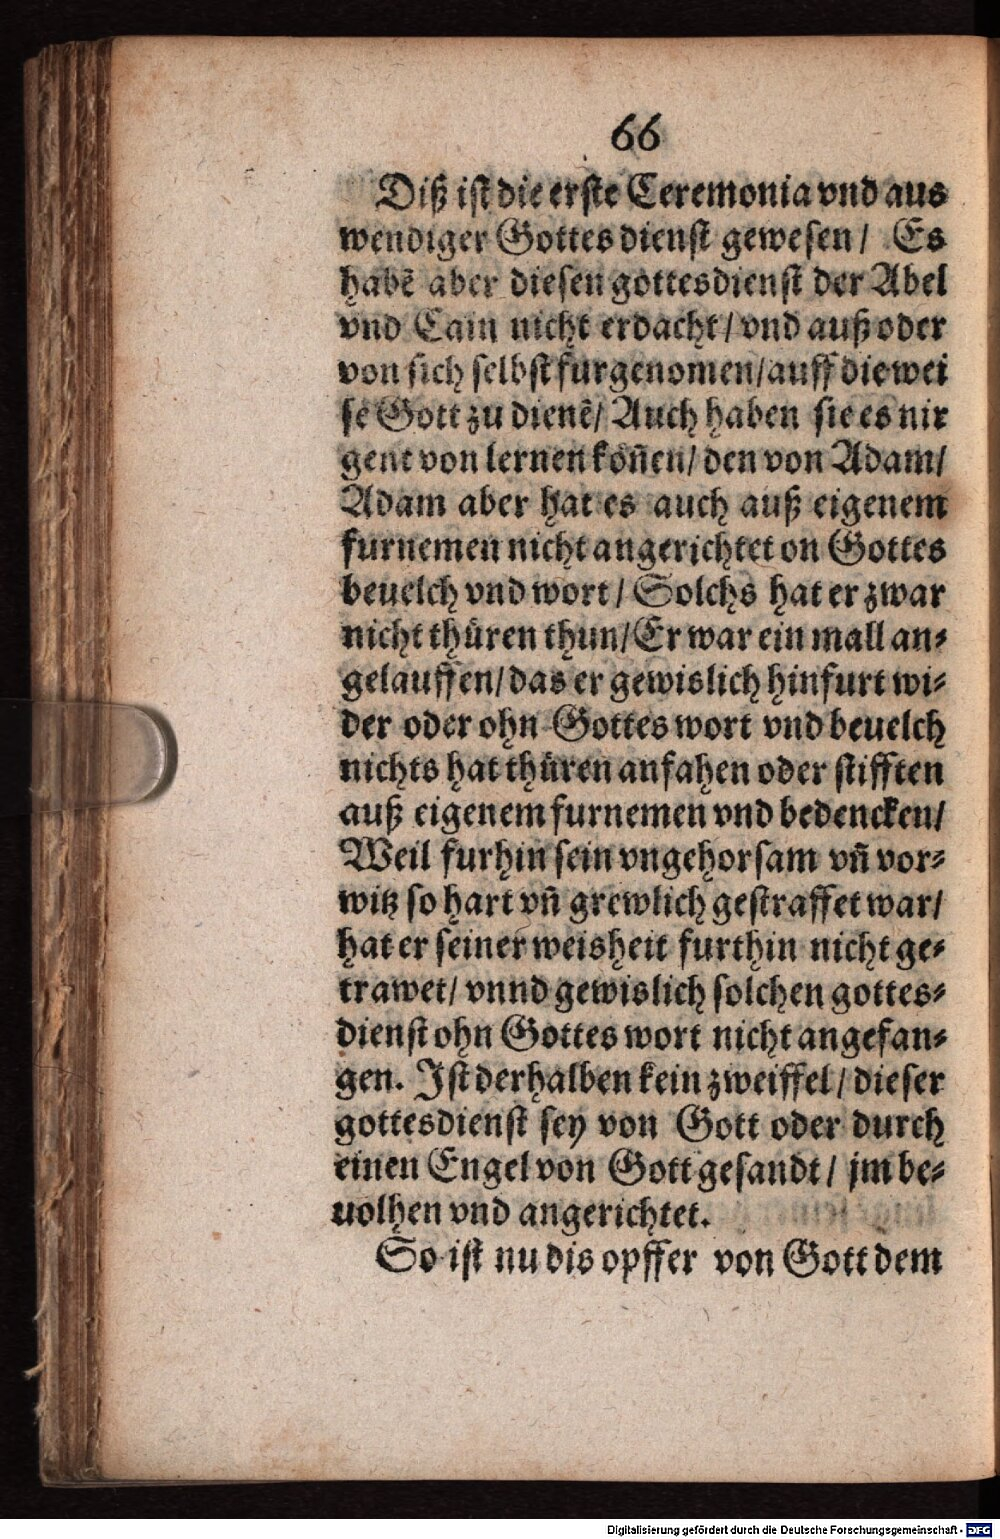 66
Diß ist die erste Ceremonia vnd aus
wendiger Gottes dienst gewesen / Es
habē aber diesen gottesdienst der Abel
vnd Cain nicht erdacht / vnd auß oder
von sich selbst furgenomen / auff die wei
se Gott zu dienē / Auch haben sie es nir
gent von lernen köñen / den von Adam /
Adam aber hat es auch auß eigenem
furnemen nicht angerichtet on Gottes
beuelch vnd wort / Solchs hat er zwar
nicht thüren thun / Er war ein mall an⸗
gelauffen / das er gewislich hinfurt wi⸗
der oder ohn Gottes wort vnd beuelch
nichts hat thüren anfahen oder stifften
auß eigenem furnemen vnd bedencken /
Weil furhin sein vngehorsam vñ vor⸗
witz so hart vñ grewlich gestraffet war /
hat er seiner weisheit furthin nicht ge⸗
trawet / vnnd gewislich solchen gottes⸗
dienst ohn Gottes wort nicht angefan⸗
gen. Ist derhalben kein zweiffel / dieser
gottesdienst sey von Gott oder durch
einen Engel von Gott gesandt / jm be⸗
uolhen vnd angerichtet.
So ist nu dis opffer von Gott dem
Digitalisierung gefördert durch die Deutsche Forschungsgemeinschaft - DFG